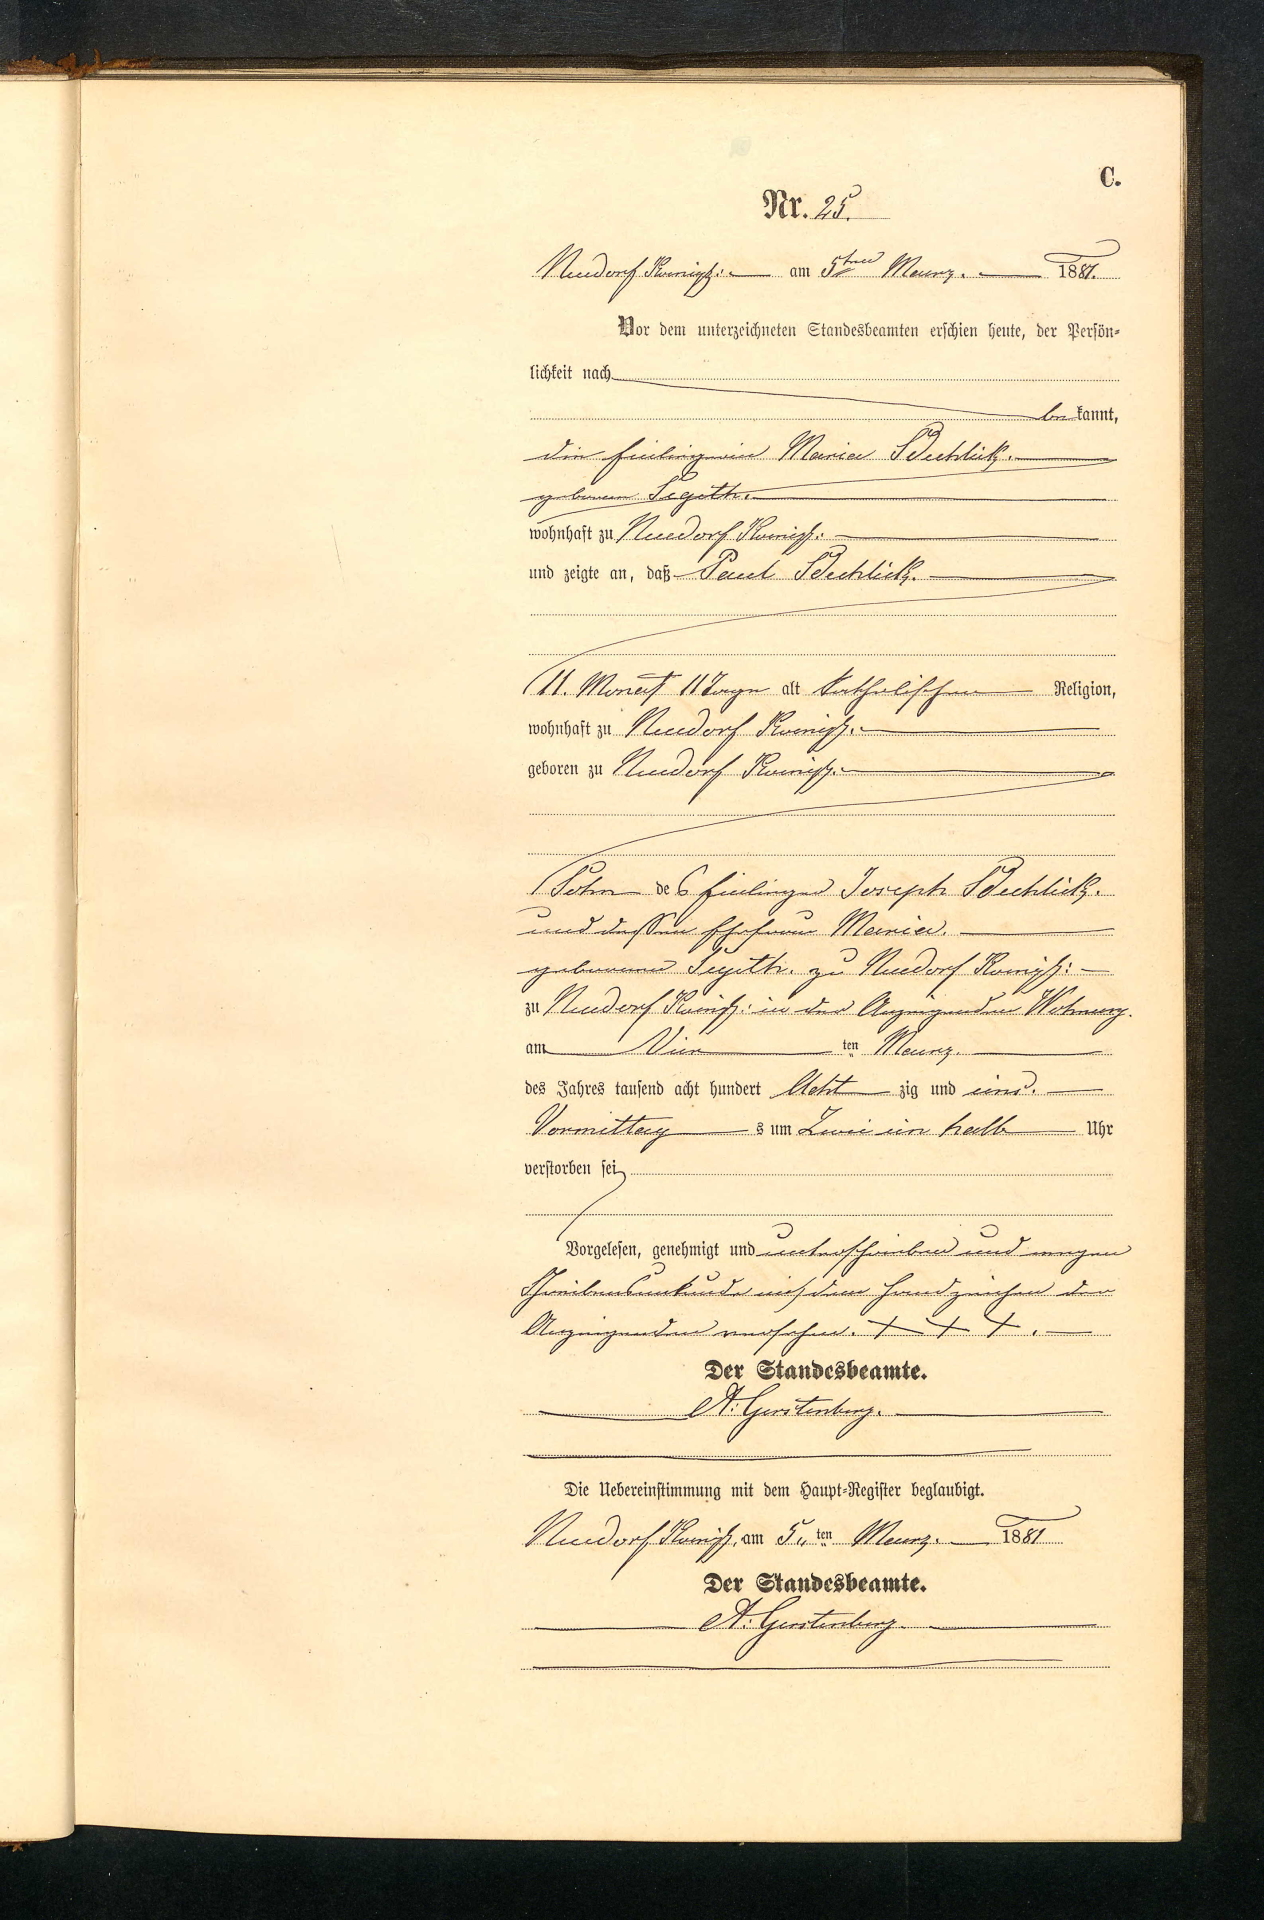 C.
Nr. 25.
Neudorf Koenigl: am 5ten Maerz. 1881.
Vor dem unterzeichneten Standesbeamten erschien heute, der Persön-
lichkeit nach
be kannt,
die Maria
geborene Segeth.
wohnhaft zu Neudorf Koenigl:
und zeigte an, daß Paul
11. Monat 11 Tage alt katholischer Religion,
wohnhaft zu Neudorf Koenigl.
geboren zu Neudorf Koenigl.
Sohn des Joseph
und dessen Ehefrau Maria.
geborene Segeth. zu Neudorf Koenigl:
zu Neudorf Koenigl: in der Anzeigenden Wohnung.
am Vier ten Maerz.
des Jahres tausend acht hundert Acht zig und eins.
Vormittag s um Zwei ein halb Uhr
verstorben sei
Vorgelesen, genehmigt und unterschrieben und wegen
Schreibensunkunde mit dem Handzeichen der
Anzeigenden versehen. + + + .
Der Standesbeamte.
A. Gerstenberg.
Die Uebereinstimmung mit dem Haupt-Register beglaubigt.
Neudorf Koenigl. am 5. ten Maerz. 1881
Der Standesbeamte.
A. Gerstenberg.